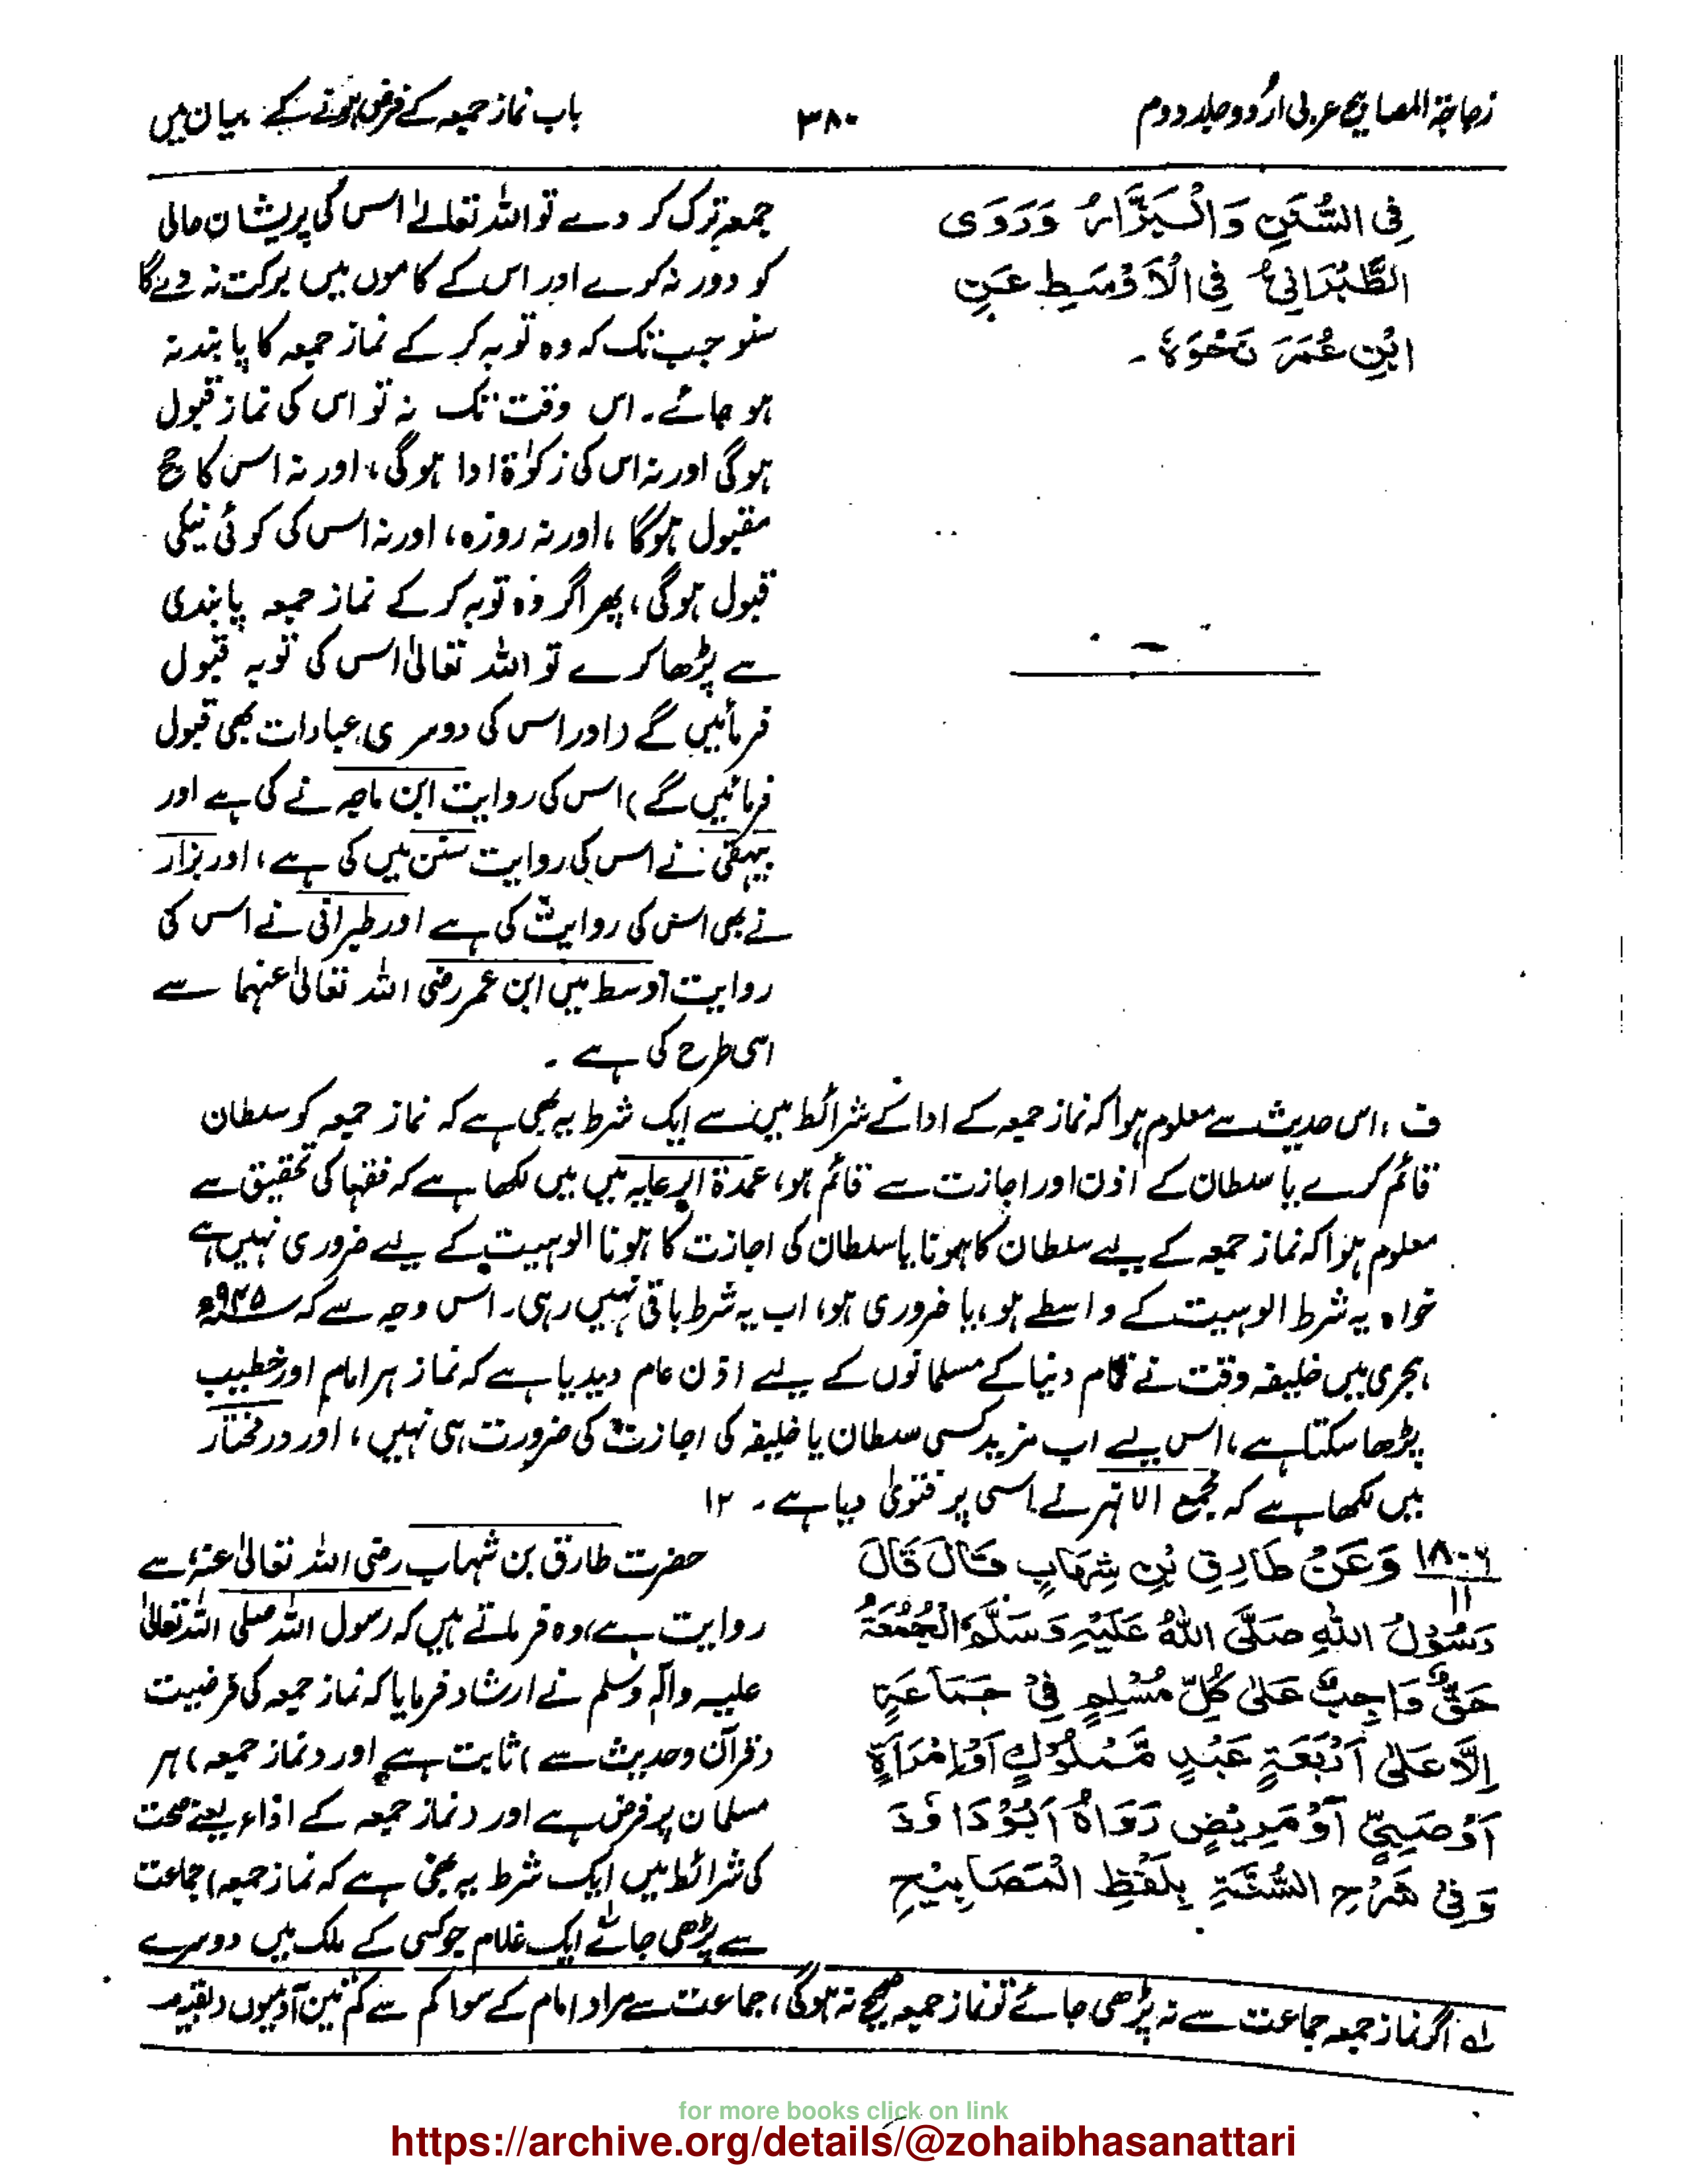 زجاجۃ المصابیح عربی اردو جلد دوم
۳۸۰
باب نماز جمعہ کے فرض ہونے کے بیان میں
فِی السُّنَنِ وَالْبَزَّارُ وَرَوَی
الطَّبْرَانِیُّ فِی الْاَوْسَطِ عَنِ
ابْنِ عُمَرَ نَحْوَہٗ ۔
جمعہ ترک کر دے تو اللہ تعالےٰ اس کی پریشان حالی
کو دور نہ کرے اور اس کے کاموں میں برکت نہ دے گا
سنو جب تک کہ وہ توبہ کر کے نماز جمعہ کا پابند نہ
ہو جائے۔ اس وقت تک نہ تو اس کی نماز قبول
ہوگی اور نہ اس کی زکوٰۃ ادا ہوگی، اور نہ اس کا حج
مقبول ہوگا، اور نہ روزہ، اور نہ اس کی کوئی نیکی
قبول ہوگی، پھر اگر وہ توبہ کر کے نماز جمعہ پابندی
سے پڑھا کرے تو اللہ تعالیٰ اس کی توبہ قبول
فرمائیں گے (اور اس کی دوسری عبادات بھی قبول
فرمائیں گے) اس کی روایت ابن ماجہ نے کی ہے اور
بیہقی نے اس کی روایت سنن میں کی ہے، اور بزار
نے بھی اس کی روایت کی ہے اور طبرانی نے اس کی
روایت اوسط میں ابن عمر رضی اللہ تعالیٰ عنہما سے
اسی طرح کی ہے ۔
ف ، اس حدیث سے معلوم ہوا کہ نماز جمعہ کے ادا کے شرائط میں سے ایک شرط یہ بھی ہے کہ نماز جمعہ کو سلطان
قائم کرے یا سلطان کے اذن اور اجازت سے قائم ہو، عمدۃ الرعایہ میں میں لکھا ہے کہ فقہا کی تحقیق سے
معلوم ہوا کہ نماز جمعہ کے لیے سلطان کا ہونا یا سلطان کی اجازت کا ہونا الوہیت کے لیے ضروری نہیں ہے
خواہ یہ شرط الوہیت کے واسطے ہو، یا ضروری ہو، اب یہ شرط باقی نہیں رہی۔ اس وجہ سے کہ سنہ ۹۴۵ھ
ہجری میں خلیفہ وقت نے تمام دنیا کے مسلمانوں کے لیے اذن عام دیدیا ہے کہ نماز ہر امام اور خطیب
پڑھا سکتا ہے، اس لیے اب مزید کسی سلطان یا خلیفہ کی اجازت کی ضرورت ہی نہیں، اور درمختار
میں لکھا ہے کہ مجمع الانہر نے اسی پر فتویٰ دیا ہے ۔ ۱۲
۱۸۰۶ وَعَنْ طَارِقِ بْنِ شِهَابٍ قَالَ قَالَ
۱۱
رَسُوْلُ اللهِ صَلَّى اللهُ عَلَيْهِ وَسَلَّمَ الْجُمُعَةُ
حَقٌّ وَاجِبٌ عَلٰى كُلِّ مُسْلِمٍ فِيْ جَمَاعَةٍ
اِلَّا عَلٰى اَرْبَعَةٍ عَبْدٍ مَّمْلُوْكٍ اَوْ اِمْرَأَةٍ
اَوْ صَبِيٍّ اَوْ مَرِيْضٍ رَوَاهُ اَبُوْدَاؤدَ
وَفِيْ شَرْحِ السُّنَّةِ بِلَفْظِ الْمَصَابِيْحِ
حضرت طارق بن شہاب رضی اللہ تعالیٰ عنہٗ سے
روایت ہے، وہ فرماتے ہیں کہ رسول اللہ صلی اللہ تعالیٰ
علیہ واٰلہٖ وسلم نے ارشاد فرمایا کہ نماز جمعہ کی فرضیت
(قرآن وحدیث سے) ثابت ہے اور (نماز جمعہ) ہر
مسلمان پر فرض ہے اور (نماز جمعہ کے اداء یعنے صحت
کی شرائط میں ایک شرط یہ بھی ہے کہ نماز جمعہ) جماعت
سے پڑھی جائے ایک غلام جو کسی کے ملک میں دوسرے
لہ اگر نماز جمعہ جماعت سے نہ پڑھی جائے تو نماز جمعہ صحیح نہ ہوگی، جماعت سے مراد امام کے سوا کم سے کم تین آدمیوں (بقیہ
for more books click on link
https://archive.org/details/@zohaibhasanattari